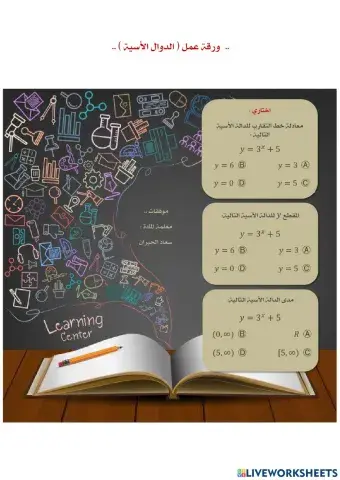 .. ورقة عمل ( الدوال الأسية ) ..
اختاري :
معادلة خط التقارب للدالة الأسية
التالية :
y = 3^x + 5
y = 3 Ⓐ y = 6 Ⓑ
y = 5 Ⓒ y = 0 Ⓓ
المقطع y للدالة الأسية التالية
y = 3^x + 5
y = 3 Ⓐ y = 6 Ⓑ
y = 5 Ⓒ y = 0 Ⓓ
مدى الدالة الأسية التالية
y = 3^x + 5
R Ⓐ (0, ∞) Ⓑ
[5, ∞) Ⓒ (5, ∞) Ⓓ
موفقات ..
معلمة المادة :
سعاد الحيران
Learning
Center
LIVEWORKSHEETS